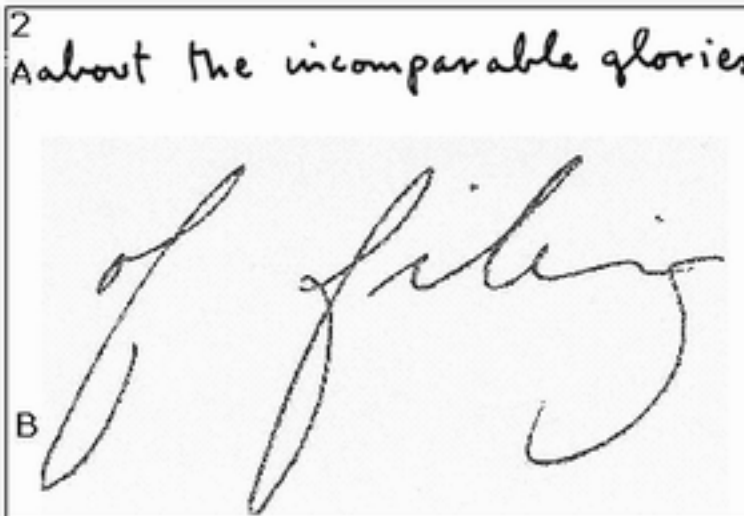 2
A about the incomparable glories
B of filing